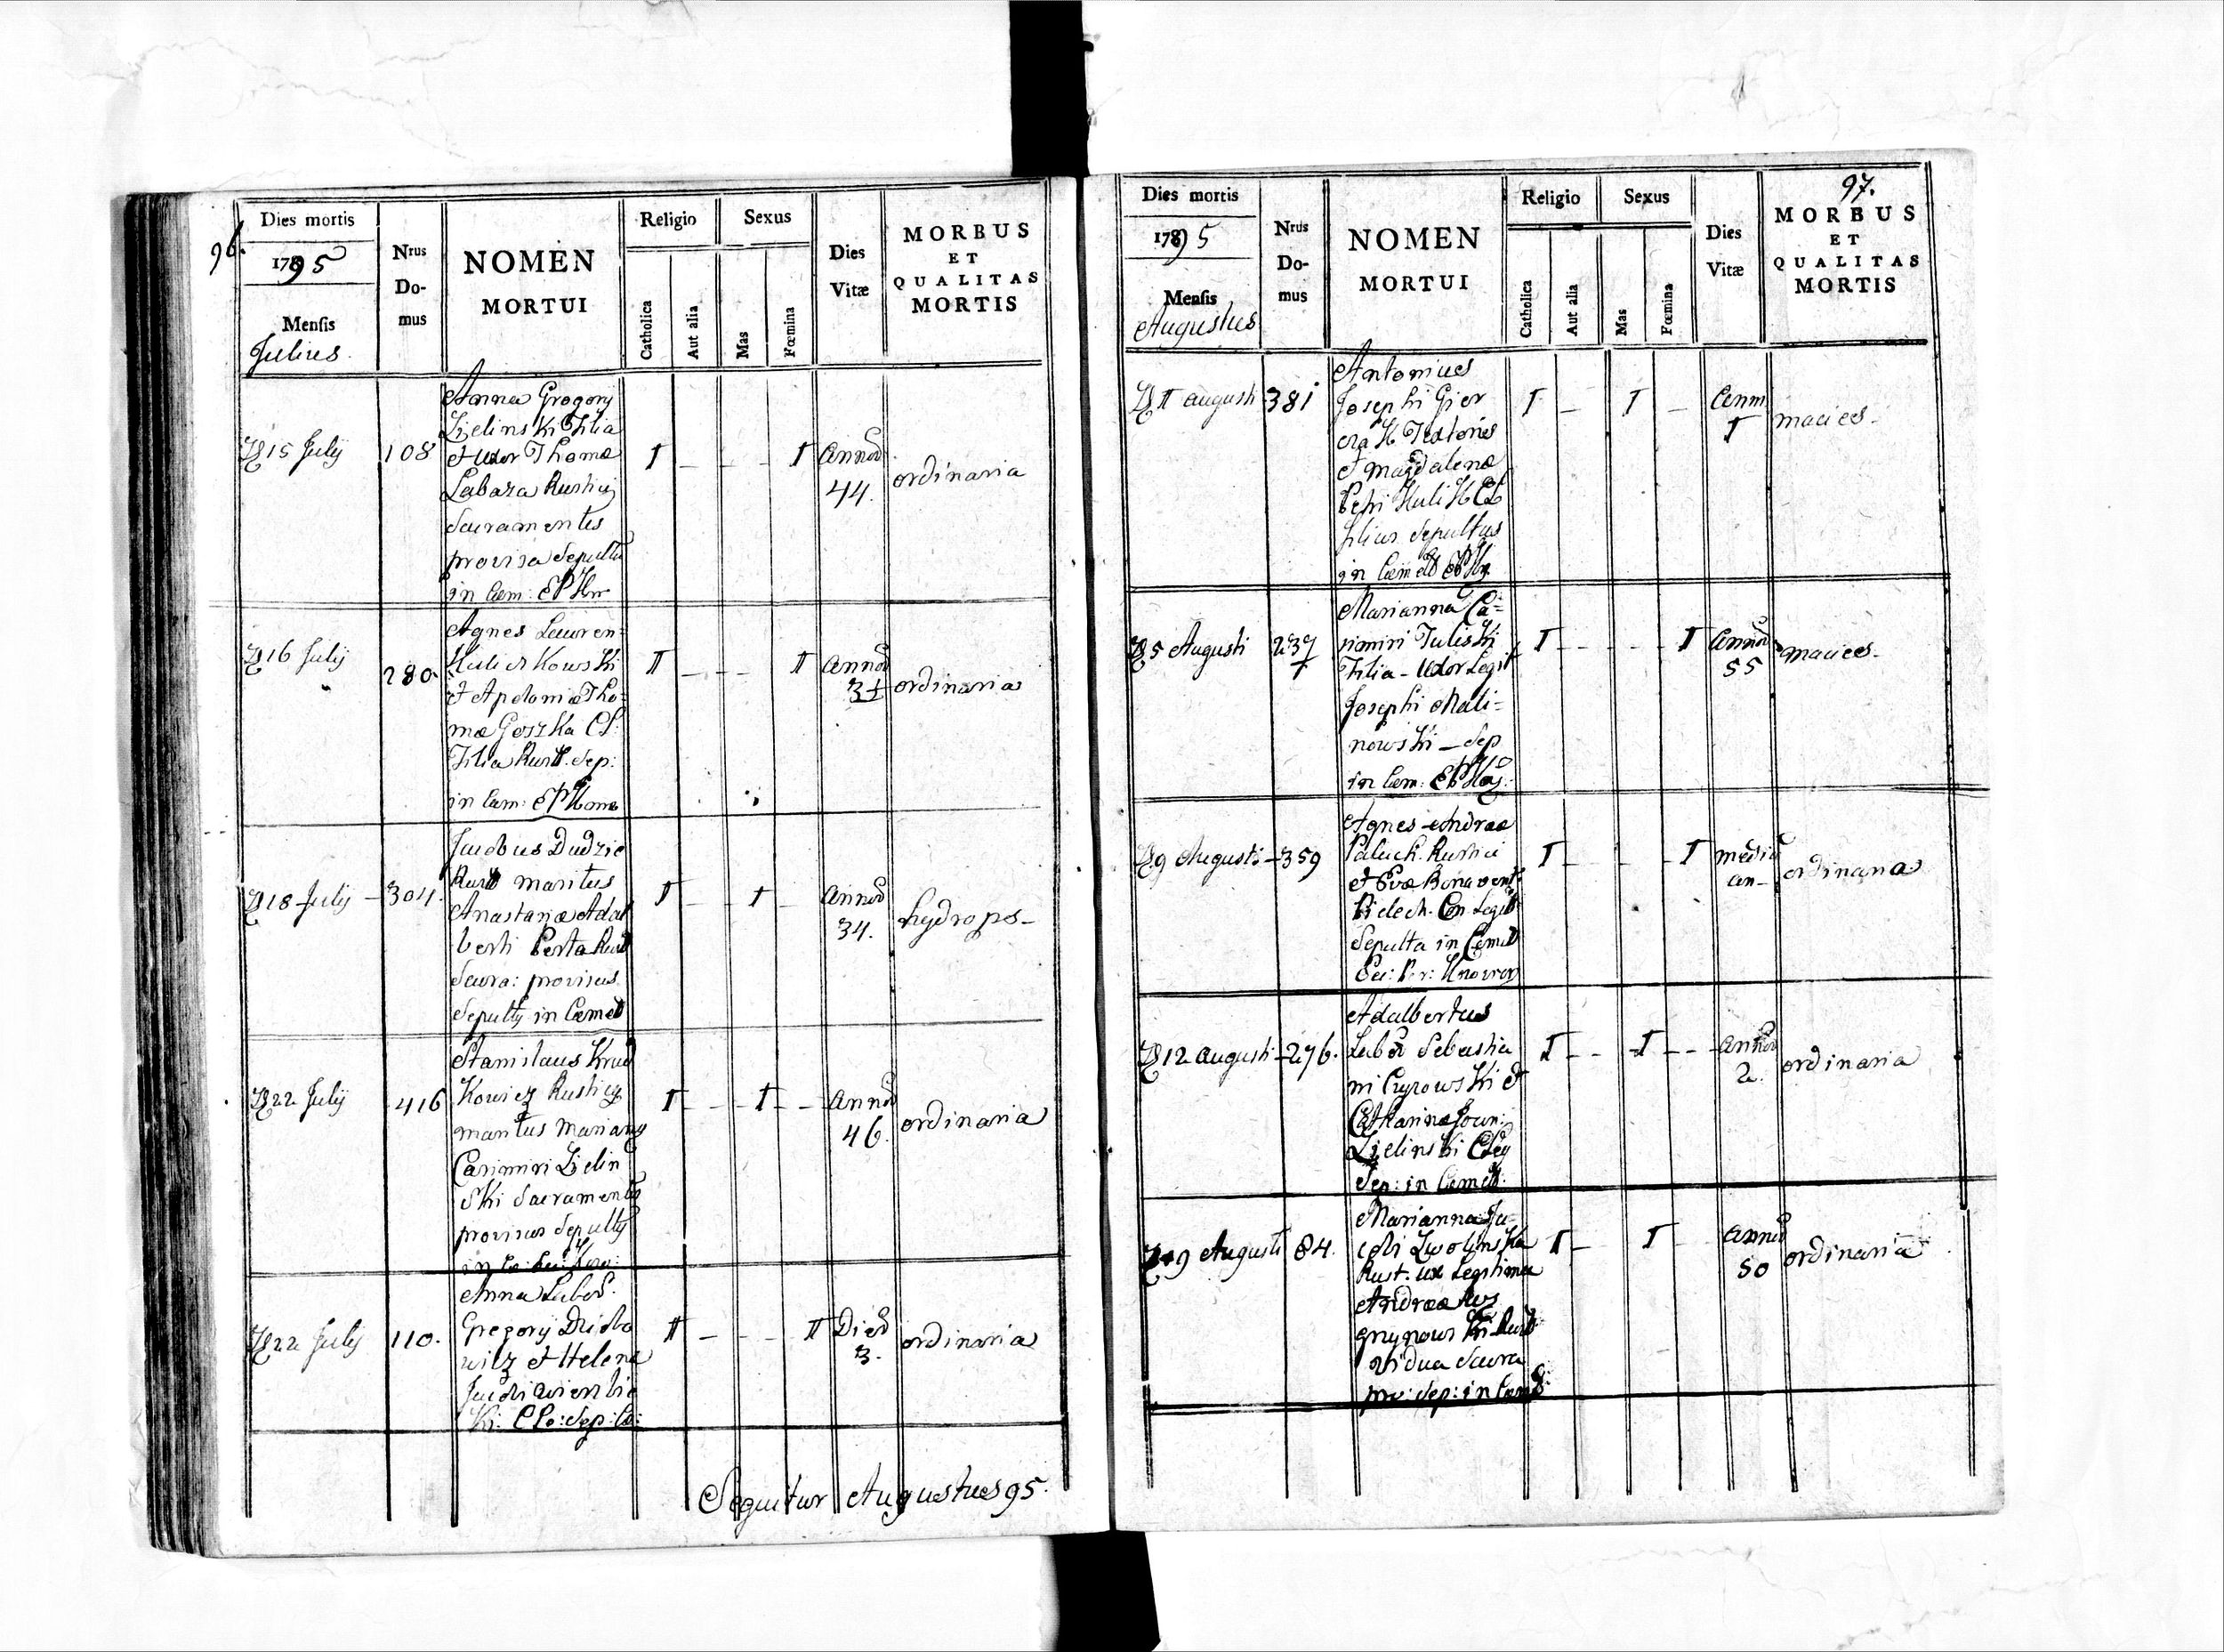 96.
Dies mortis
1795
Mensis
Julius
Nrus Do-
mus
NOMEN
MORTUI
Religio
Catholica
Aut alia
Sexus
Mas
Fœmina
Dies
Vitæ
MORBUS
ET
QUALITAS
MORTIS
D 15 July
108
Anna Gregory
Zielinski Filia
et Uxor Thomæ
Labaza Rustici
Sacramentis
provisa Sepulta
in Cæm:
I - - - I
Annor
44.
ordinaria
D 16 July
280
Agnes Lauren=
et Apoloniæ Tho=
mæ Goszka CL:
Filia Rust. Sep:
in Cæm:
I - - - I
Annor
ordinaria
D 18 July
304.
Jacobus Dudzic
Rust maritus
Anastasiæ Adal
berti Perta Rust
Sacra: provisus
Sepultus in Cæmet
I - I -
Annor
34.
hydrops -
D 22 July
416
Stanislaus Krud
Kowicz Rusticus
maritus Mariannæ
Casimiri Zielin
ski Sacramentis
provisus Sepultus
I - - I - -
Annor
46.
ordinaria
D 22 July
110.
Anna Labor.
Gregory
witz et Helena
Jacobi
Ki: CLe: Sep: Cæ:
I - - - I
Dier
3.
ordinaria
Sequitur Augustus 95.
97.
Dies mortis
1795
Mensis
Augustus
Nrus
Do-
mus
NOMEN
MORTUI
Religio
Catholica
Aut alia
Sexus
Mas
Fœmina
Dies
Vitæ
MORBUS
ET
QUALITAS
MORTIS
D 1 augusti
381
Antonius
Josephi Gier
czak Textoris
et Magdalena
Petri Kulik CL
filius Sepultus
in Cæmet
I - I -
Anni
1
macies -
D 5 Augusti
237
1
Marianna Ca=
simiri Tuliski
Filia - Uxor Legit
Josephi Mali=
nowski - Sep
in Cæm:
I - - - - I
Annor
55
macies -
D 9 Augusti
359
Agnes Andreæ
Paluch. Rustici
et Evæ Bonavent:
Bielech. Con Legit
Sepulta in Cæmet
I - - - I
medii
an -
ordinaria
D 12 augusti
276.
Adalbertus
Labor Sebastia
ni Cyrowski et
Catharinæ Joan:
Zielinski CLeg
Sep: in Cæmet:
I - - I - -
Annor
2.
ordinaria
D 19 Augusti
84.
Marianna Ja=
cobi Zwolinska
Rust. ux Legitima
Andreæ
vidua Sacra
pro: Sep: in Cæmet:
I - I
Annor
50
ordinaria